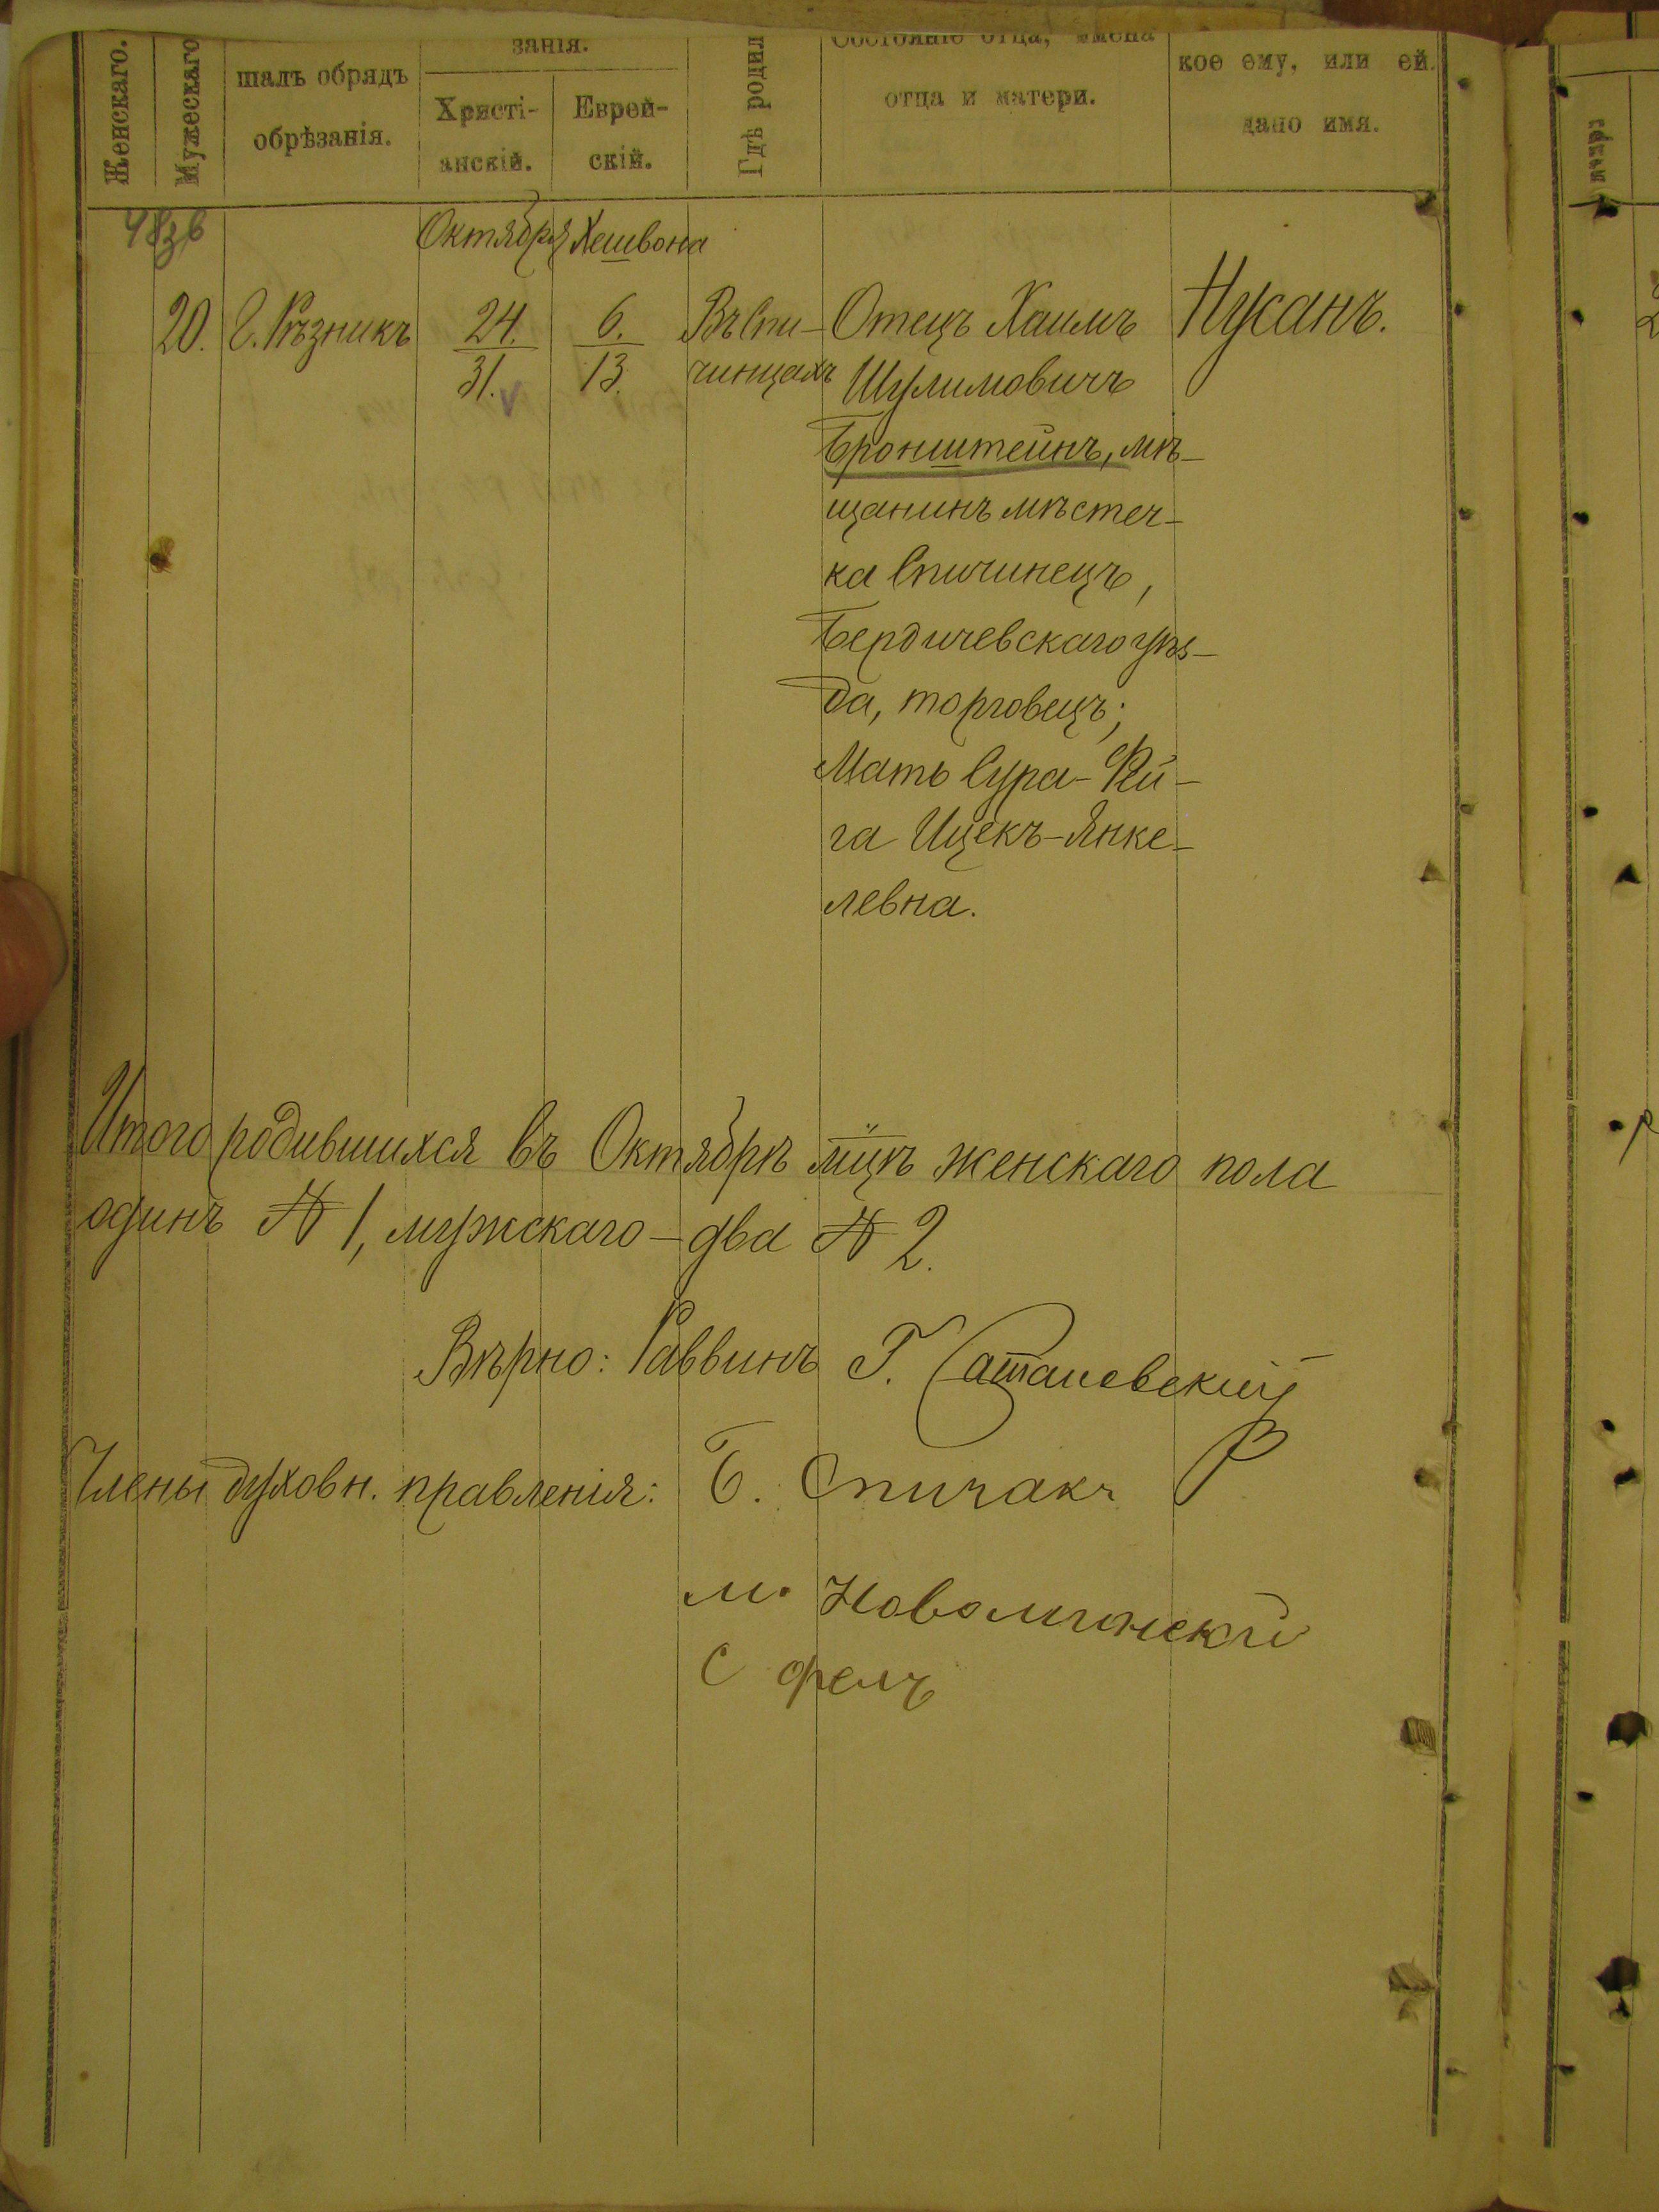 Женскаго.
Мужескаго
шалъ обрядъ
обрѣзанія.
занія.
Христі-
анскій.
Еврей-
скій.
Гдѣ родил
Состояніе отца, имена
отца и матери.
кое ему, или ей.
дано имя.
Октября Хешвона
20. Г. Рѣзникъ 24. 6. Въ Спи- Отецъ Хаимъ Нусанъ.
31. 13. чинцахъ Шулимовичъ
Бронштейнъ, мѣ-
щанинъ мѣстеч-
ка Спичинецъ,
Бердичевскаго уѣз-
да, торговецъ;
Мать Сура-Фей-
га Ицекъ-Янке-
левна.
Итого родившихся въ Октябрѣ мцѣ женскаго пола
одинъ № 1, мужскаго - два № 2.
Вѣрно: Раввинъ Г.
Члены духовн. правленія: Б. Спичакъ
М.
С